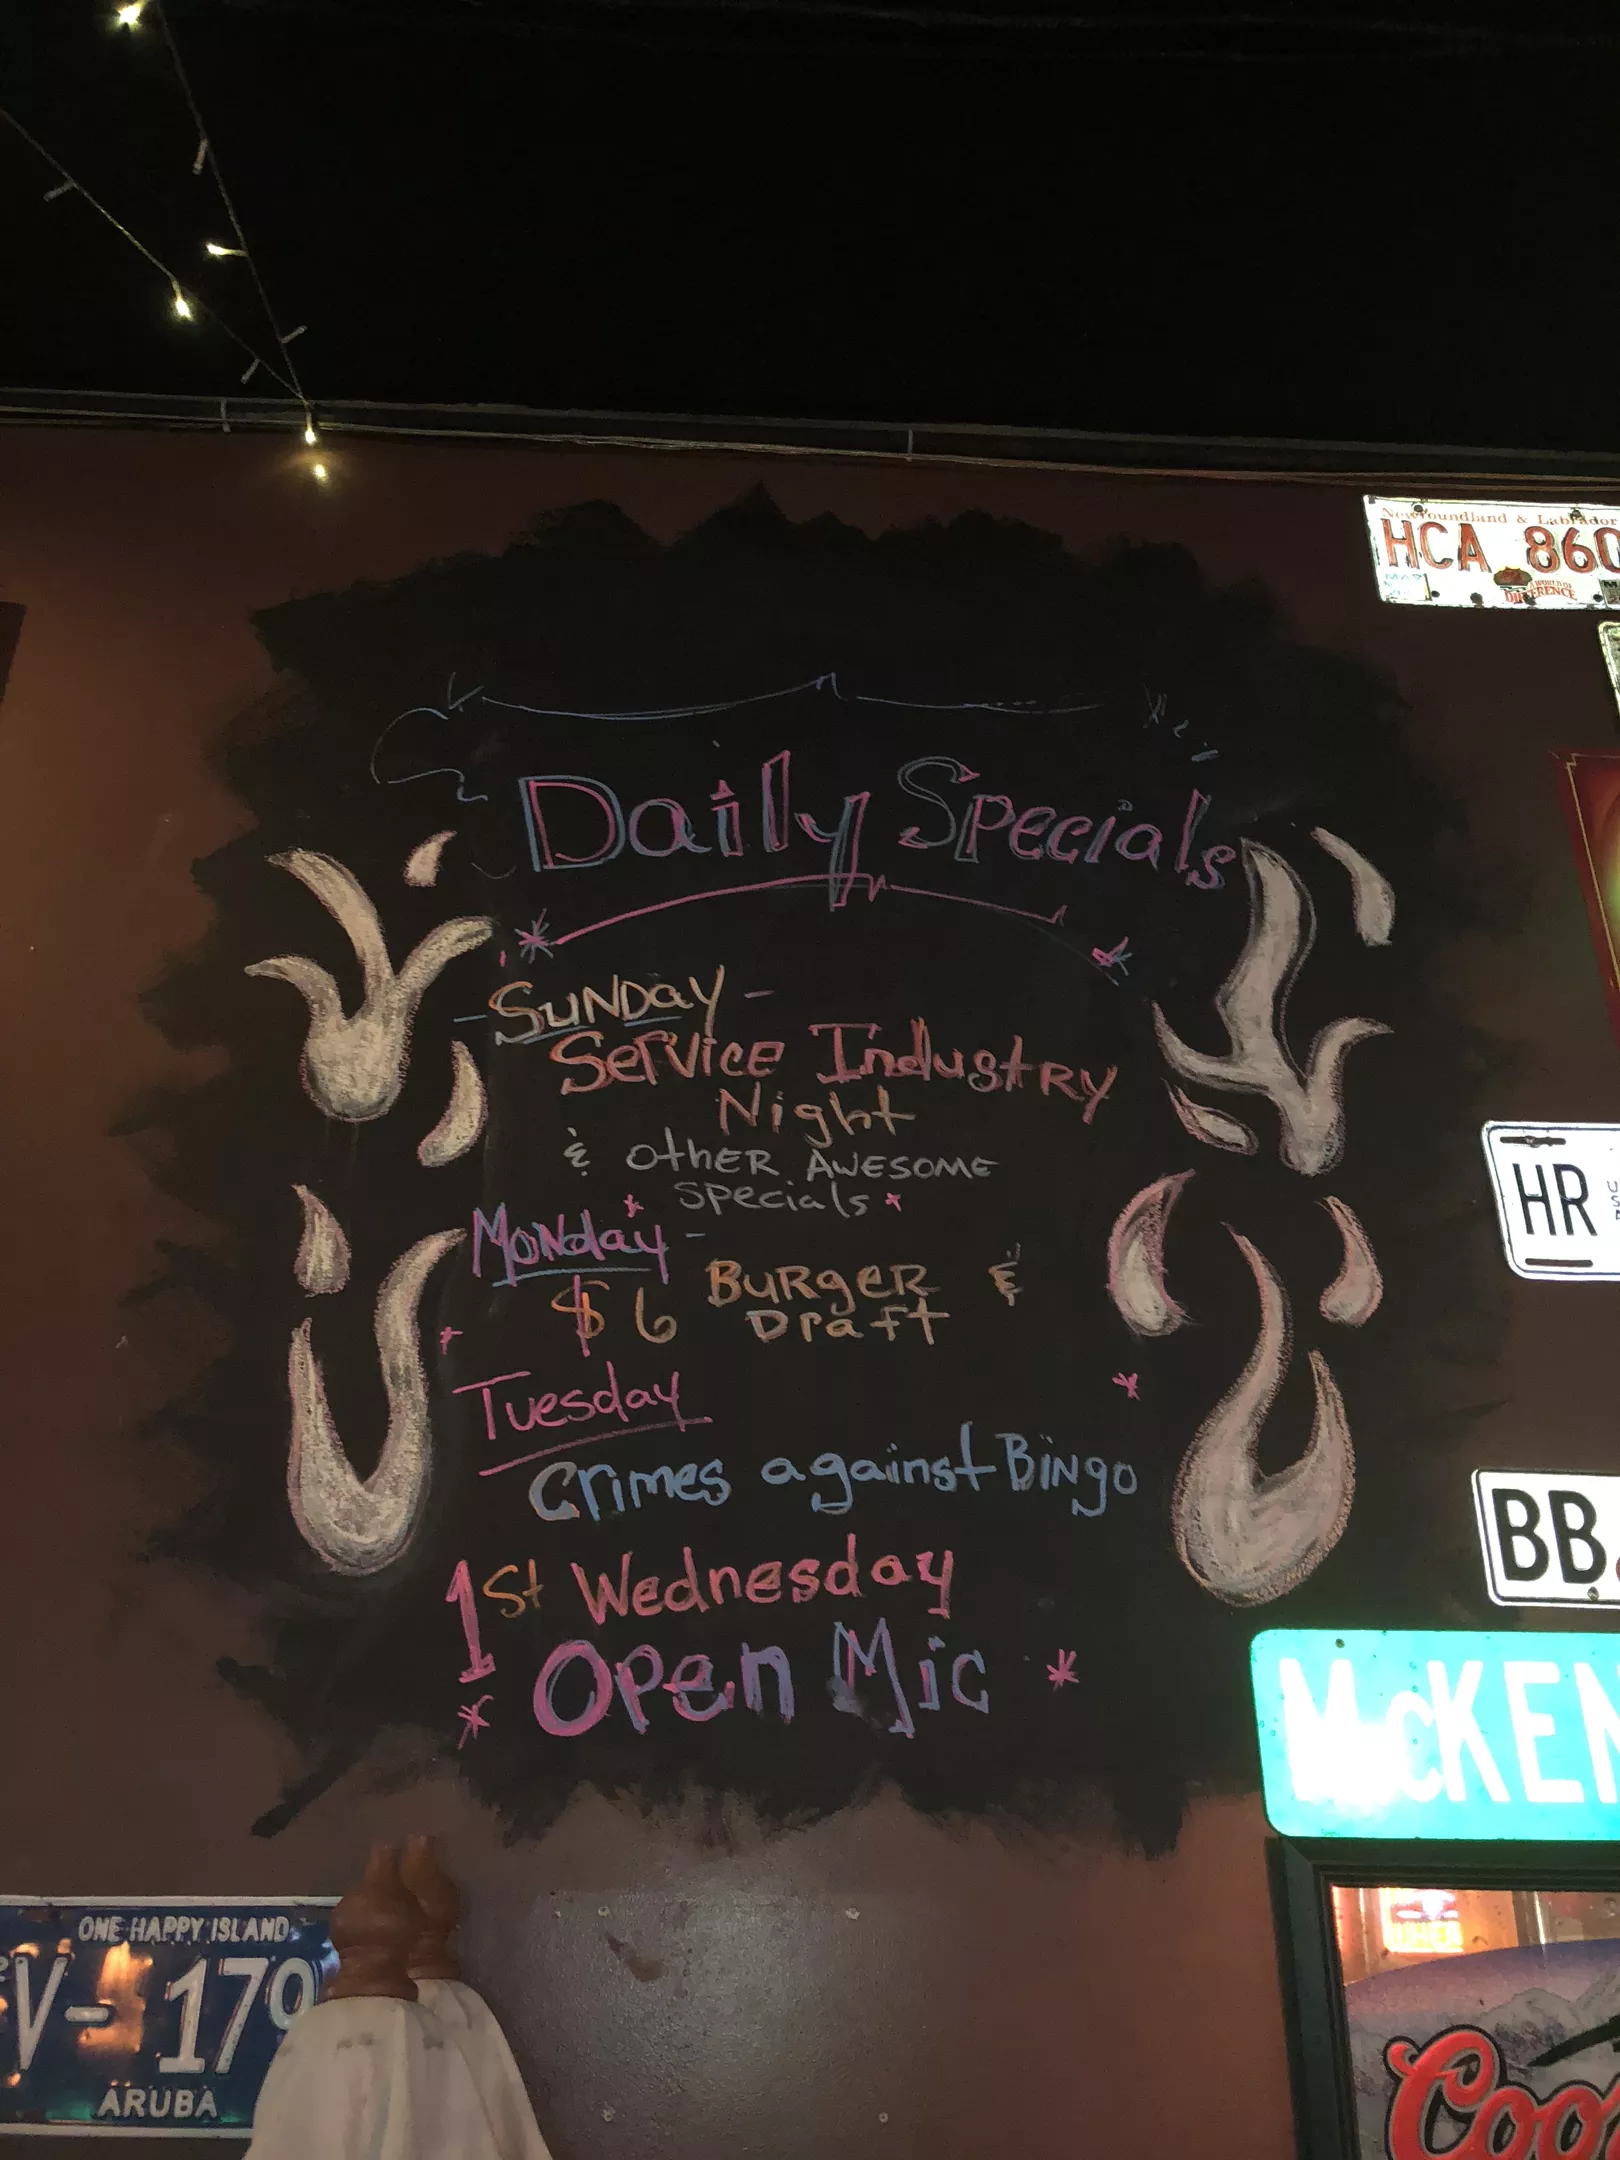 Daily Specials
- Sunday -
Service Industry
Night
& other Awesome
Specials
Monday -
$6 Burger &
Draft
Tuesday
Crimes against Bingo
1st Wednesday
Open Mic
Newfoundland & Labrador
HCA 860
A WORLD OF
DIFFERENCE
HR
USA
BB
McKEN
ONE HAPPY ISLAND
V-179
ARUBA
Coo